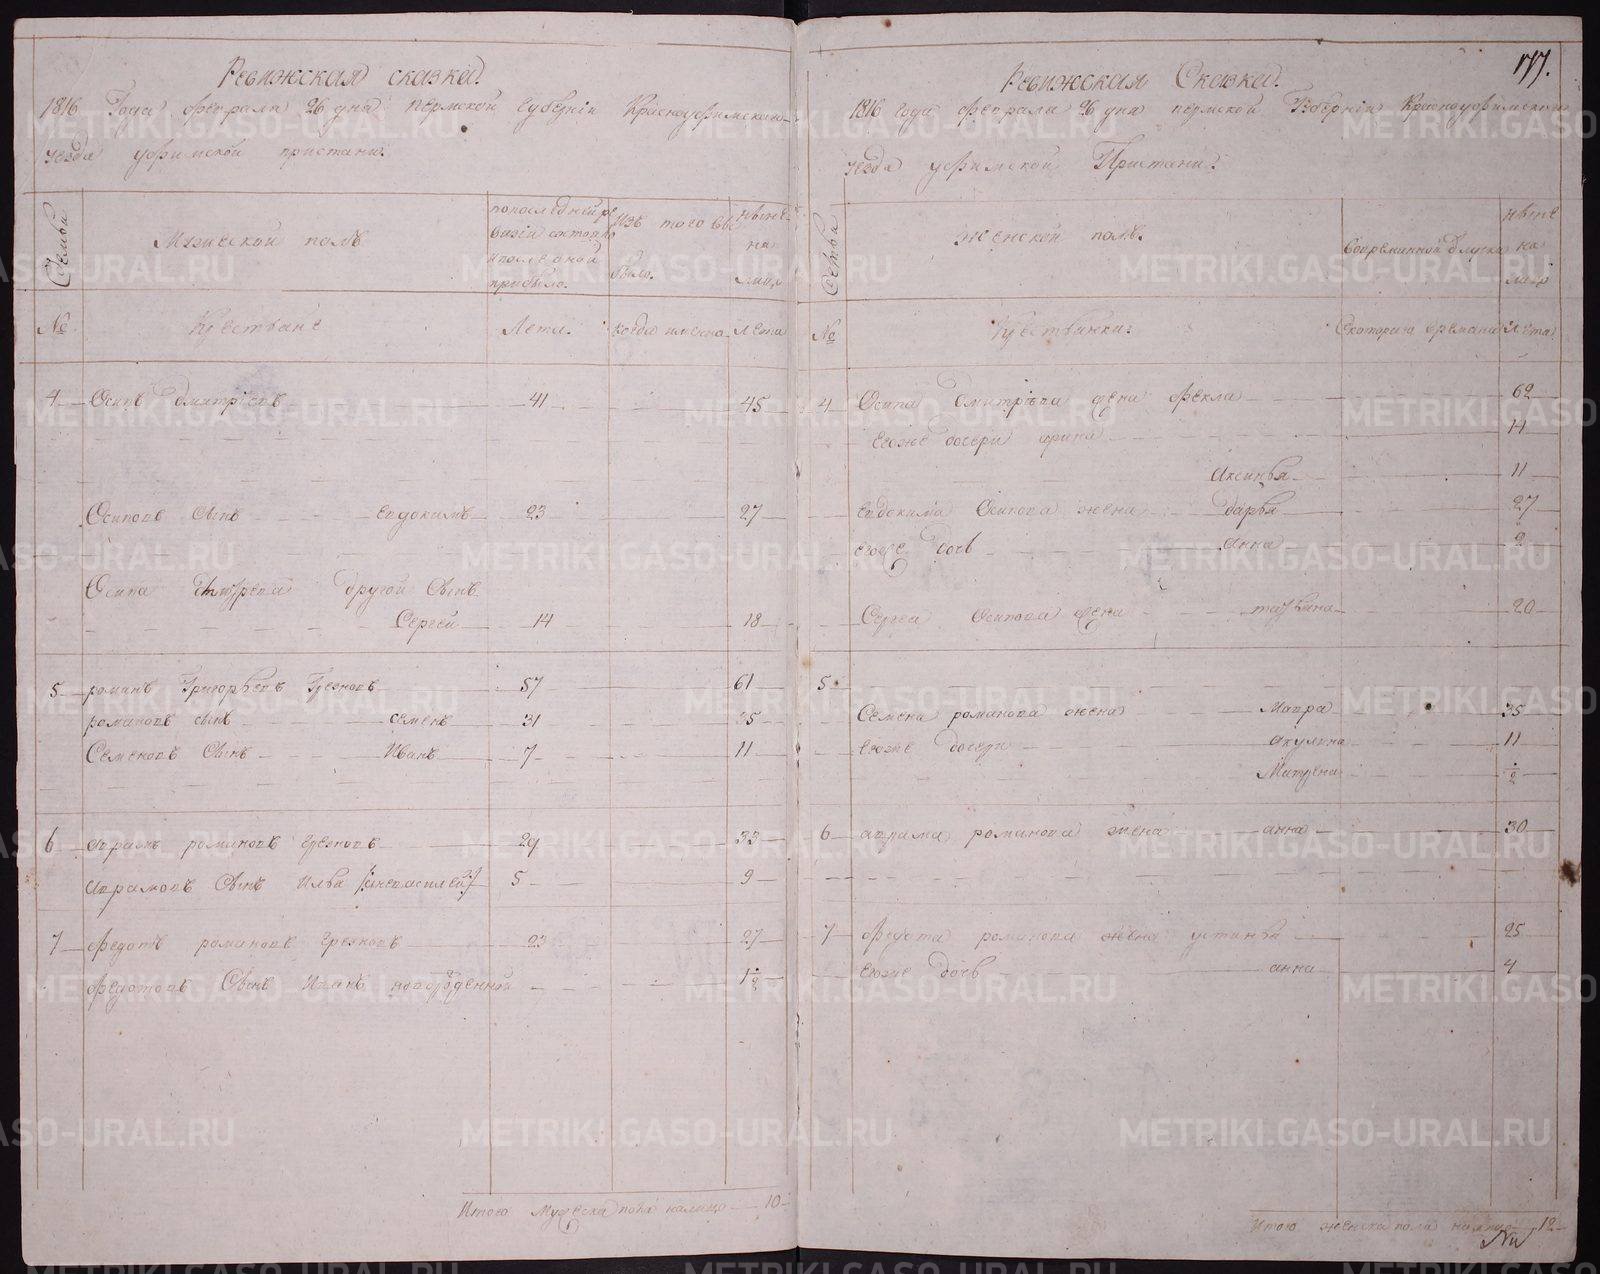 Ревижская сказка.
1816 Года февраля 26 дня пермской Губернiи Красноуфимскаго
уезда уфимской пристани.
Семьи
Мужеской полъ
попоследней ре
визiи состояло
ипослe оной
прибыло.
Изъ того
было.
ныне
на
лицо
№
Крестьяне
Лета.
когда имянно
лета
4 Осипъ Дмитрiевъ 41 45
Осиповъ Сынъ Евдокимъ 23 27
Осипа Дмитрева другой Сынъ
Сергей 14 18
5 романъ Григорьевъ Грезновъ 57 61
романовъ сынъ семенъ 31 35
Семеновъ Сынъ Иванъ 7 11
6 аврамъ романовъ грезновъ 29 33
аврамовъ Сынъ Илья 5 9
7 федотъ романовъ грезновъ 23 27
федотовъ Сынъ Иванъ новорожденной 1 1/2
Итого Мужеска пола налицо 10
177.
Ревижская Сказка.
1816 года февраля 26 дня пермской Губернiи Красноуфимскаго
уезда уфимской Пристани.
Семьи
Женской полъ.
Вовременной отлучке
ныне
на
лицо
№
Крестьянки.
Скотораго времани
лета
4 Осипа Дмитрiева жена фекла 62
Евоже дочери ирина 14
Аксинья 11
Евдокима Осипова жена дарья 27
Евоже дочь Анна 2
Сергея Осипова жена татьяна 20
5
Семена романова жена Мавра 35
Евоже дочери акулина 11
Матрена 1/2
6 аврама романова жена анна 30
7 федота романова жена устинья 25
Евоже дочь анна 4
Итого женска пола налицо 12
METRIKI.GASO-URAL.RU